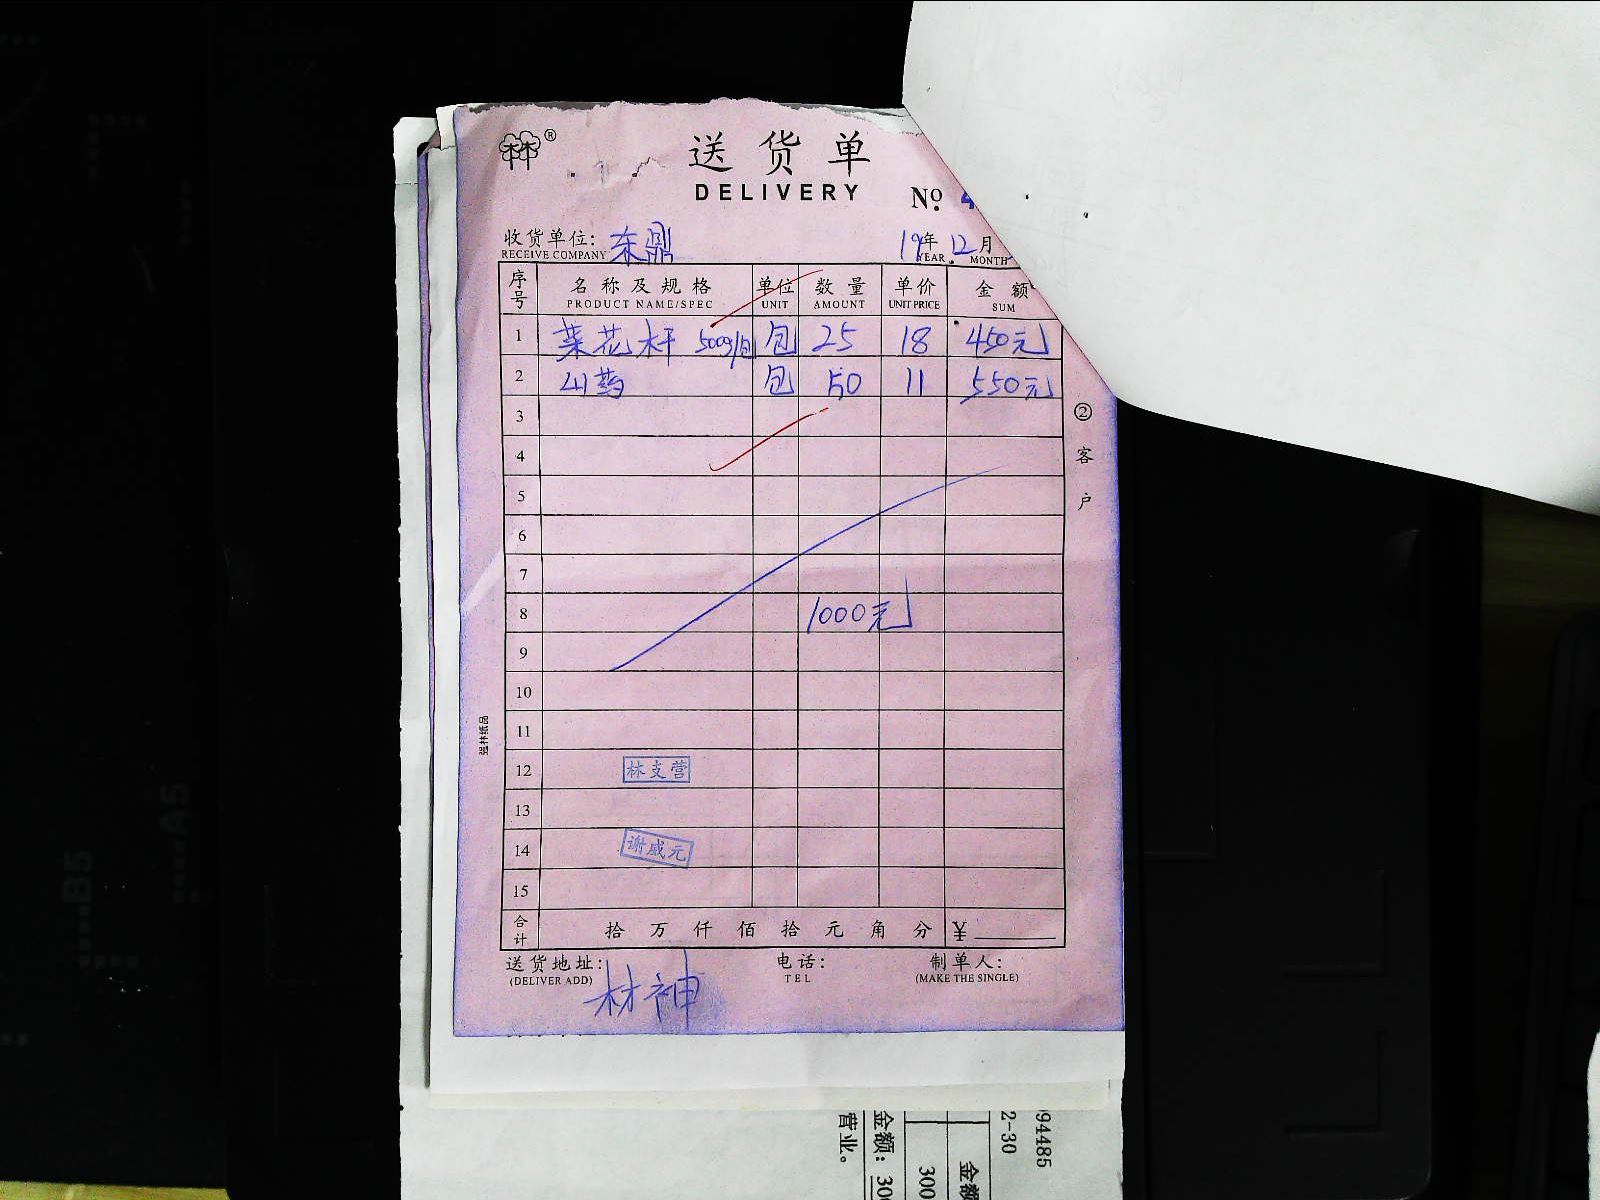 林®
送货单
DELIVERY
No. 4
收货单位: 东鼎 19年 12月
RECEIVE COMPANY YEAR MONTH
序号 名称及规格 单位 数量 单价 金额
PRODUCT NAME/SPEC UNIT AMOUNT UNIT PRICE SUM
1 菜花杆 500g/包 包 25 18 450元
2 山药 包 50 11 550元
3
4
5
6
7
8 1000元
9
10
11
12 林支营
13
14 谢成元
15
合计 拾 万 仟 佰 拾 元 角 分 ¥
送货地址: 林神 电话: 制单人:
(DELIVER ADD) TEL (MAKE THE SINGLE)
②客户
强林纸品
94485
2-30
金额
300
金额: 300
营业。
B5
A5